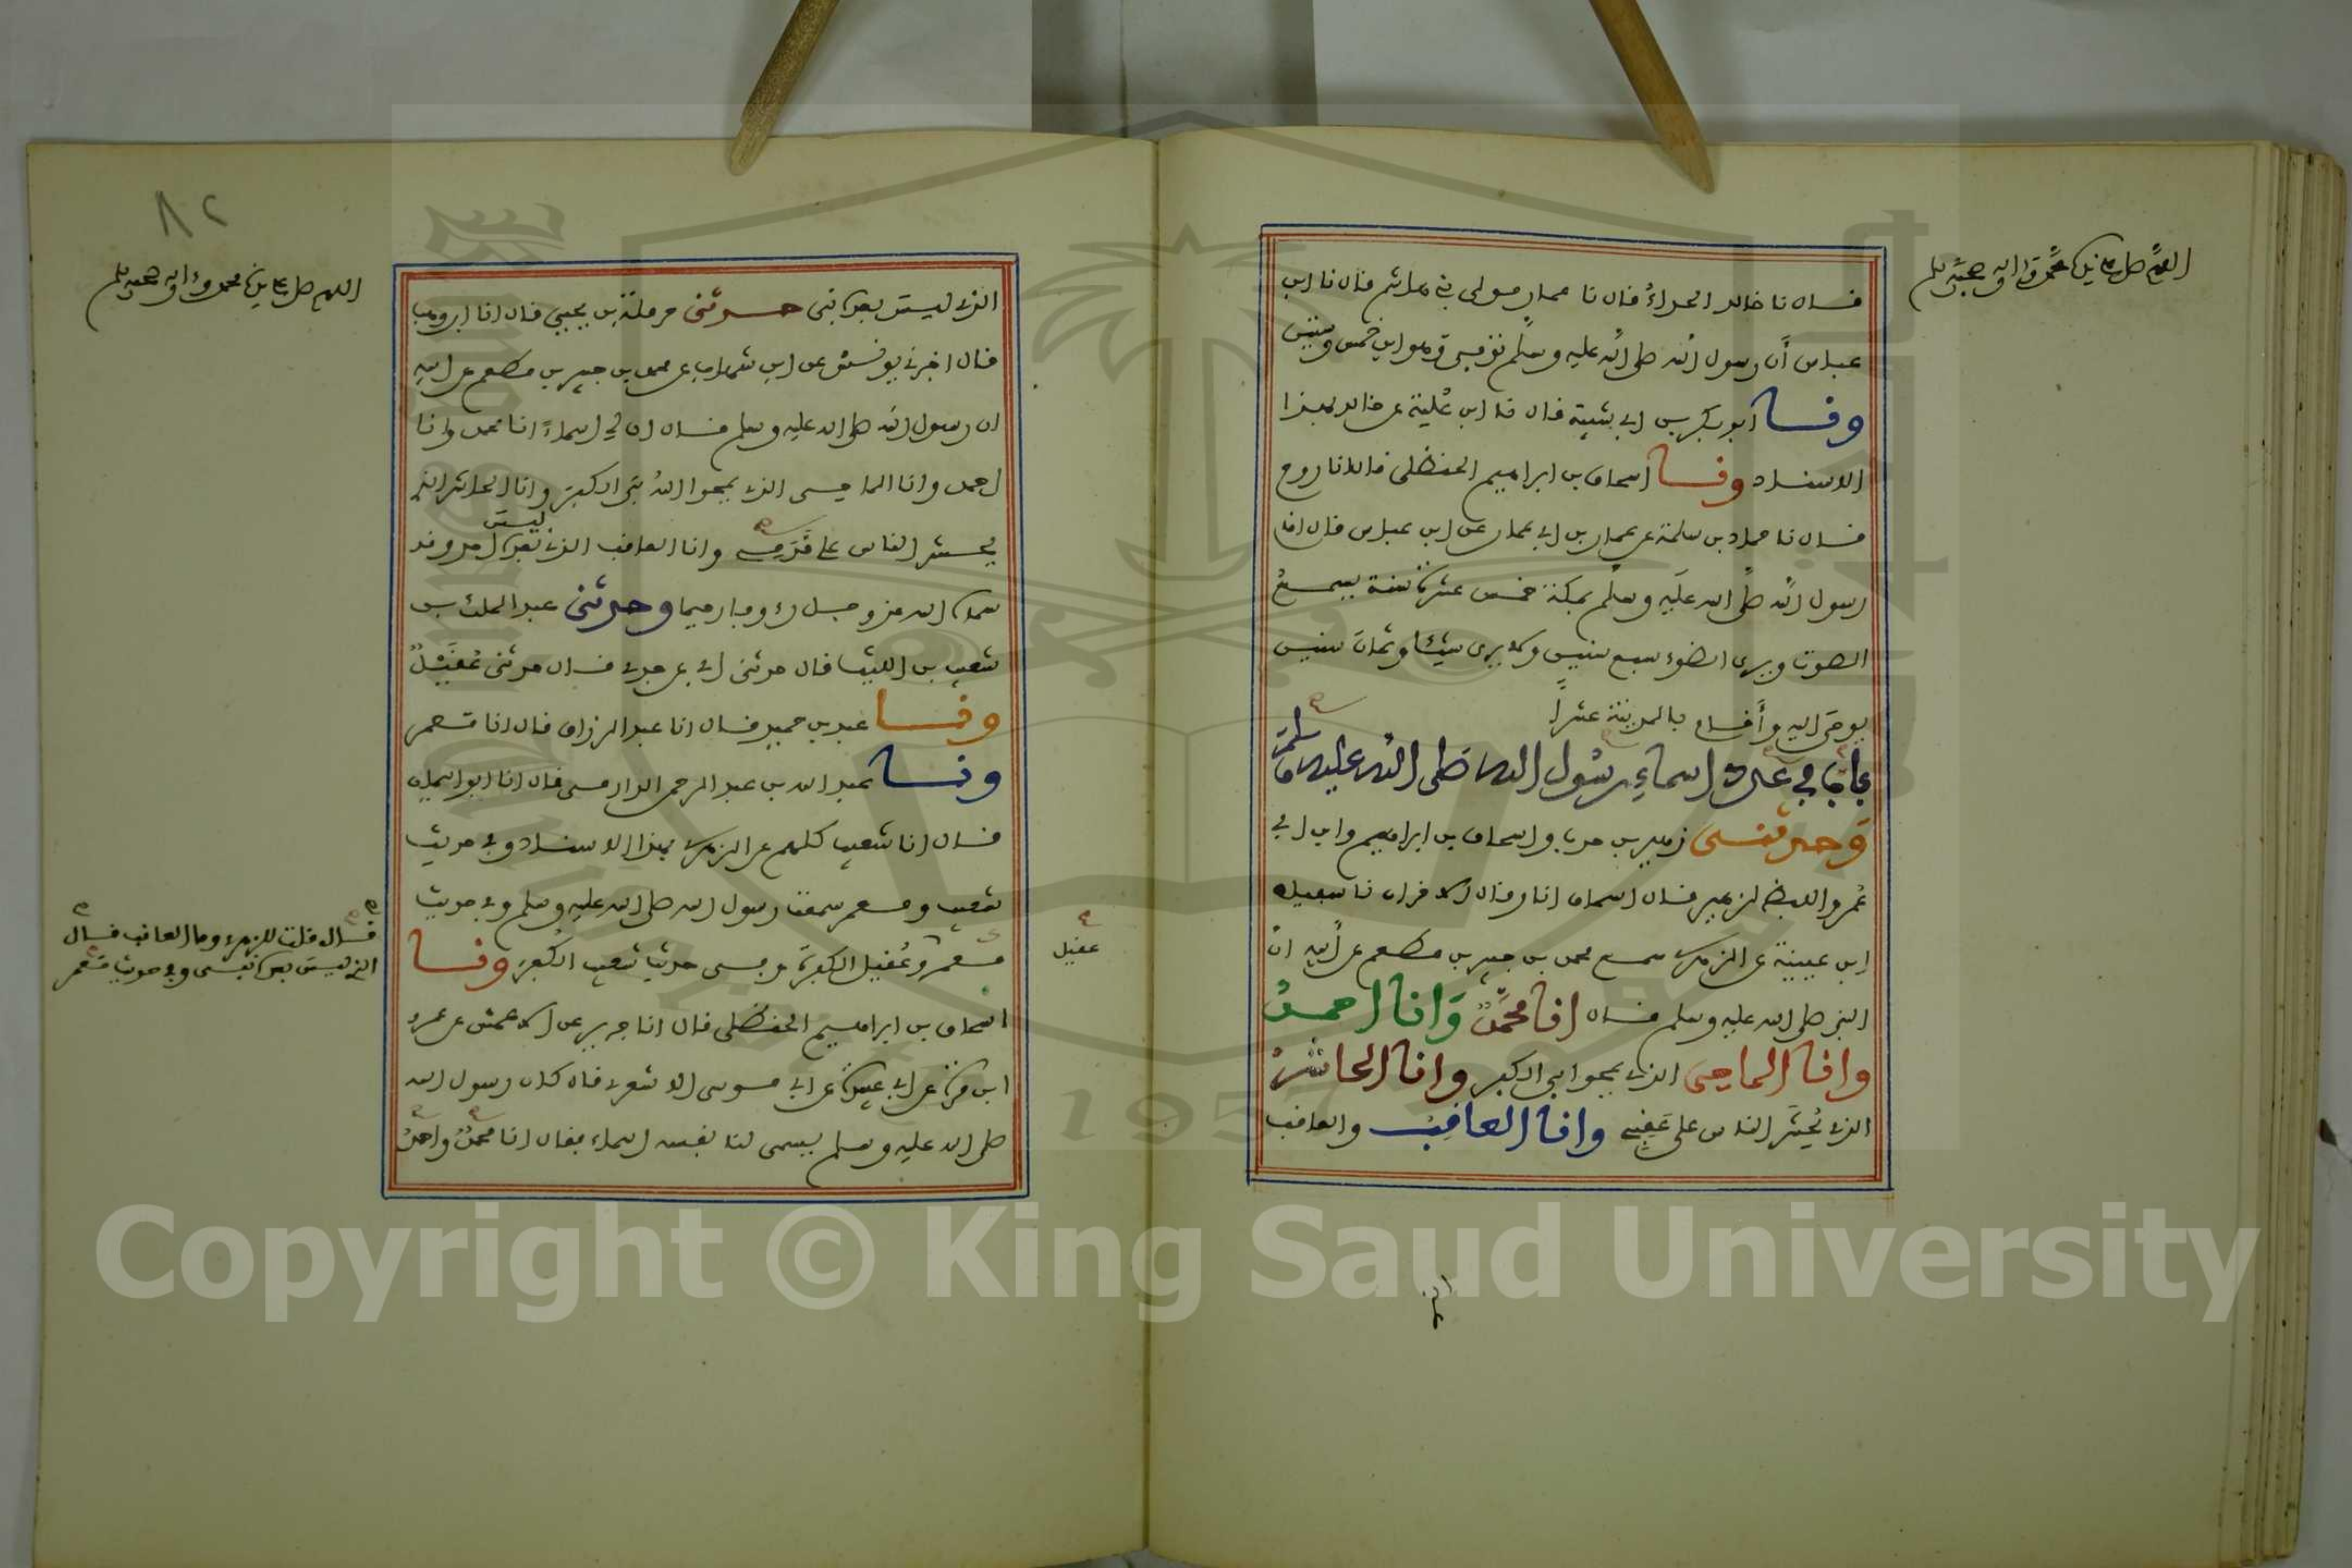 اللهم صل على سيدنا محمد وءاله وصحبه وسلم
قال نا خالد الحذاءُ قال نا عمار مولى بني هاشم قال نا ابن
عباس أن رسول الله صلى الله عليه وسلم توفي وهو ابن خمس وستين
ونا ابو بكر بن ابي شيبة قال نا ابن عُلية عن خالد بهذا
الاسناد ونا اسحاق بن ابراهيم الحنظلي قال انا روح
قال نا حماد بن سلمة عن عمار بن ابي عمار عن ابن عباس قال اقام
رسول الله صلى الله عليه وسلم بمكة خمس عشرة سنة يسمع
الصوت ويرى الضوء سبع سنين ولا يرى شيئا وثمان سنين
يوحى اليه وأقام بالمدينة عشراً
باب في عدد اسماءِ رسول الله صلى الله عليه وسلم
وحدثني زهير بن حرب واسحاق بن ابراهيم وابن ابي
عُمر واللفظ لزهير قال اسحاق انا وقال الاخران نا سفيان
ابن عيينة عن الزهري سمع محمد بن جبير بن مطعم عن أبيه ان
النبي صلى الله عليه وسلم قال انا محمدٌ وانا احمدُ
وانا الماحي الذي يمحوا بي الكفر وانا الحاشرُ
الذي يُحشَر الناس على عَقِبي وانا العاقبُ والعاقب
الذي
٨٢
اللهم صل على سيدنا محمد وءاله وصحبه وسلم
الذي ليس بعده نبي حدثني حرملة بن يحيى قال انا ابن وهب
قال اخبرني يونسُ عن ابن شهاب عن محمد بن جبير بن مطعم عن ابيه
ان رسول الله صلى الله عليه وسلم قال ان لي اسماءً انا محمد وانا
احمد وانا الماحي الذي يمحوا اللهُ بي الكفرَ وانا الحاشر الذي
يُحشر الناس على قدَمي وانا العاقب الذي ليس بعده احد وقد
سماه الله عز وجل رءوفا رحيما وحدثني عبد الملك بن
شعيب بن الليث قال حدثني ابي عن جدي قال حدثني عُقَيْلٌ
ونا عبد بن حميد قال انا عبد الرزاق قال انا معمر
ونا عبد الله بن عبد الرحمن الدارمي قال انا ابو اليمان
قال انا شعيب كلهم عن الزهري بهذا الاسناد وفي حديث
شعيب ومعمر سمعت رسول الله صلى الله عليه وسلم وفي حديث
معمر وعُقيل الكفرةَ وفي حديث شعيب الكُفرَ ونا
عقيل
قال قلت للزهري وما العاقب قال
الذي ليس بعده نبي وفي حديث معمر
اسحاق بن ابراهيم الحنظلي قال انا جرير عن الاعمش عن عمرو
ابن مرة عن ابي عبيدة عن ابي موسى الاشعري قال كان رسول الله
صلى الله عليه وسلم يسمي لنا نفسه اسماء فقال انا محمدٌ واحمدُ
Copyright © King Saud University
1957